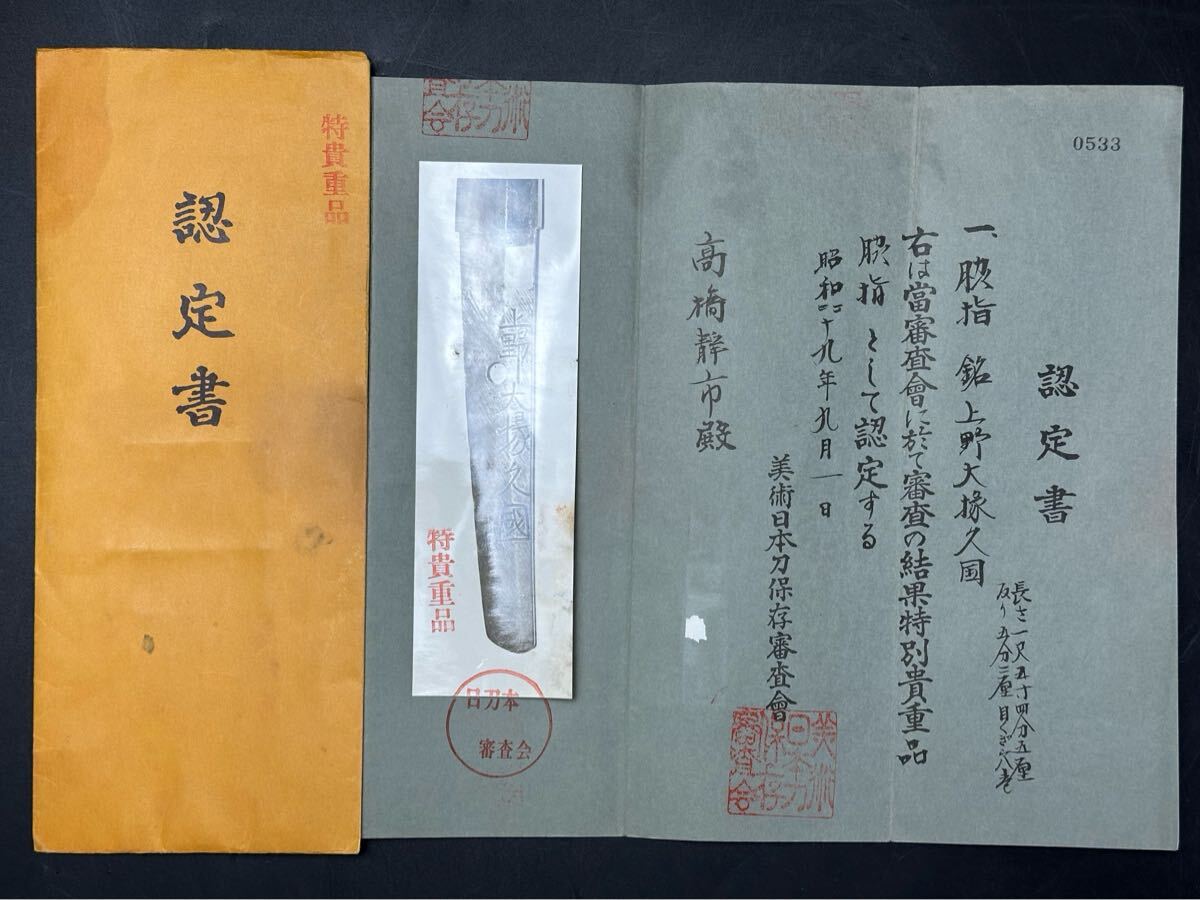 特貴重品
認定書
0533
認定書
一、脇指 銘 上野大掾久国
長さ一尺五寸四分五厘
反り五分二厘 目くぎ穴壱
右は當審査會に於て審査の結果特別貴重品
脇指として認定する
昭和二十九年九月一日
美術日本刀保存審査會
高橋靜市殿
大掾久國
特貴重品
日刀本
審査会